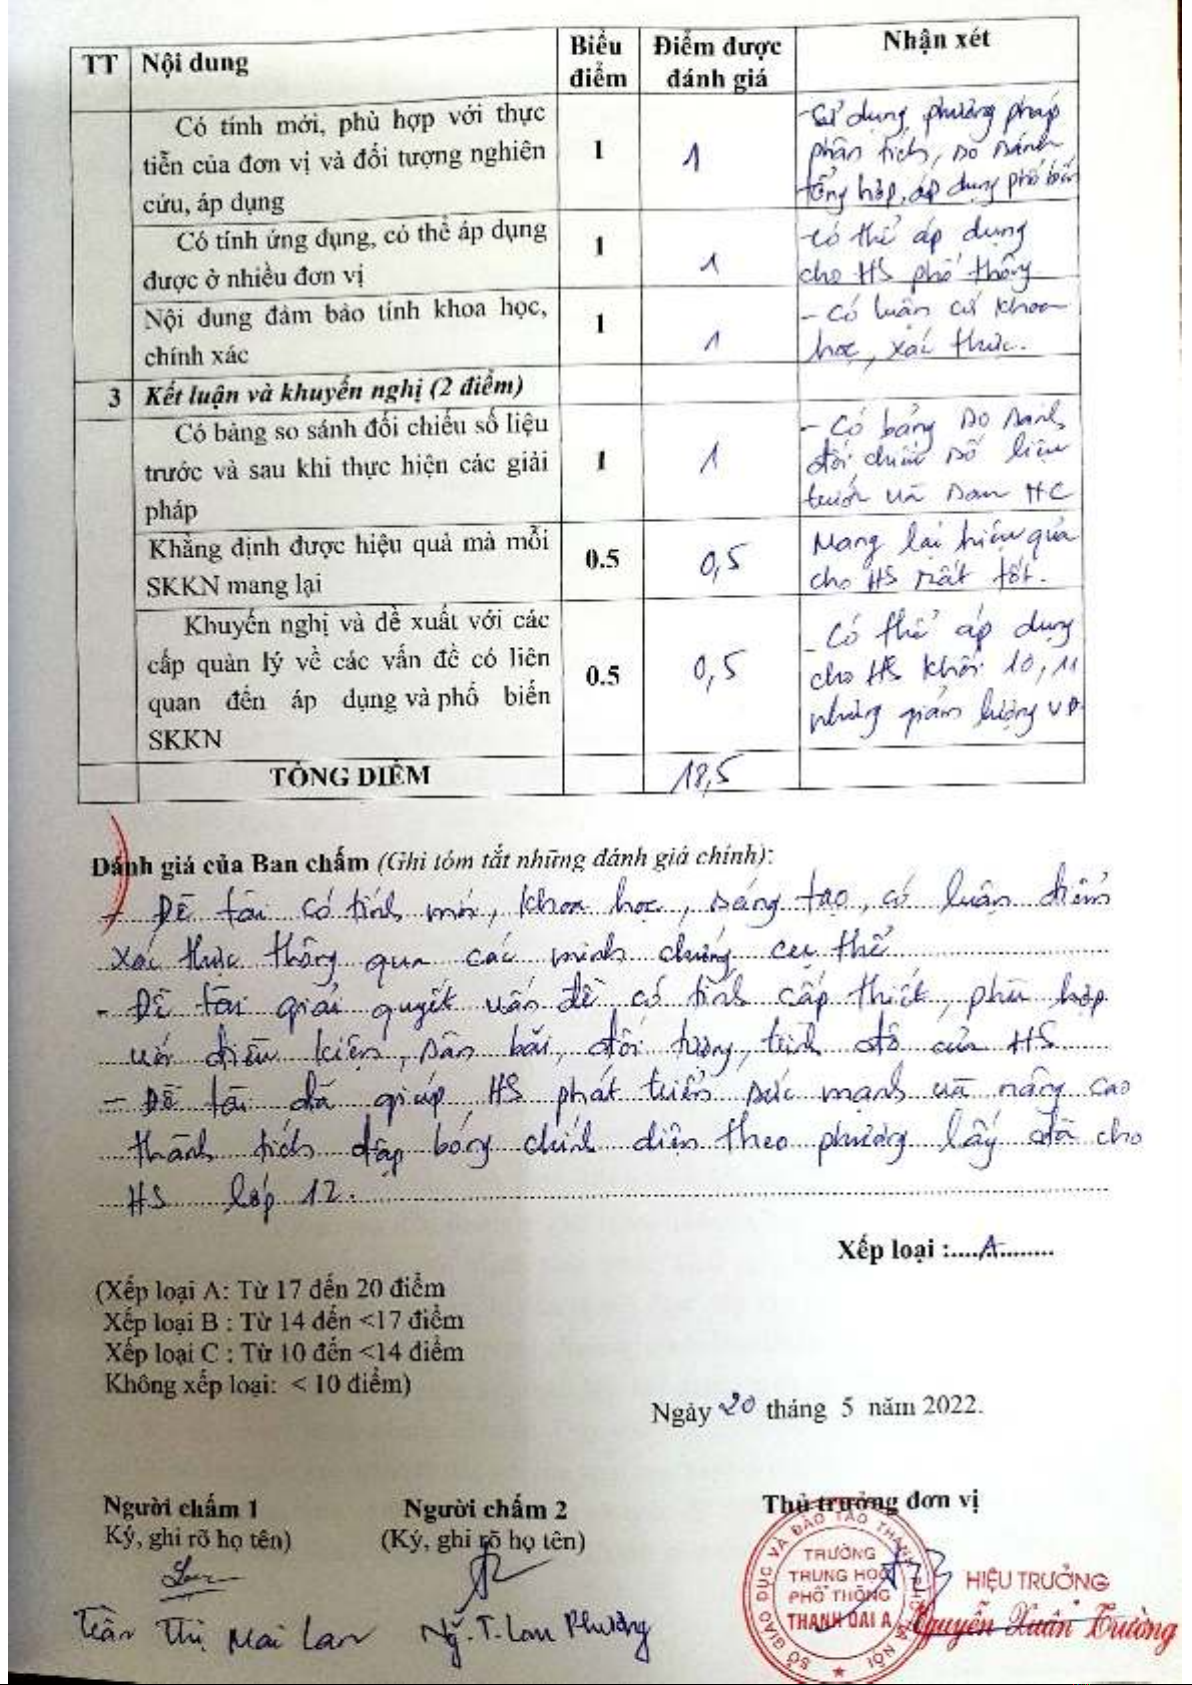 TT Nội dung Biểu điểm Điểm được đánh giá Nhận xét
Có tính mới, phù hợp với thực
tiễn của đơn vị và đối tượng nghiên
cứu, áp dụng
1
1
- Sử dụng phương pháp
phân tích, so sánh
tổng hợp, áp dụng phổ biến
Có tính ứng dụng, có thể áp dụng
được ở nhiều đơn vị
1
1
- Có thể áp dụng
cho HS phổ thông
Nội dung đảm bảo tính khoa học,
chính xác
1
1
- Có luận cứ khoa
học, xác thực.
3 Kết luận và khuyến nghị (2 điểm)
Có bảng so sánh đối chiếu số liệu
trước và sau khi thực hiện các giải
pháp
1
1
- Có bảng so sánh,
đối chiếu số liệu
trước và sau
Khẳng định được hiệu quả mà mỗi
SKKN mang lại
0.5
0,5
Mang lại hiệu quả
cho HS rất tốt.
Khuyến nghị và đề xuất với các
cấp quản lý về các vấn đề có liên
quan đến áp dụng và phổ biến
SKKN
0.5
0,5
- Có thể áp dụng
cho HS khối 10, 11
nhưng giảm lượng VĐ
TỔNG ĐIỂM 18,5
Đánh giá của Ban chấm (Ghi tóm tắt những đánh giá chính):
- Đề tài có tính mới, khoa học, sáng tạo, có luận điểm
xác thực thông qua các minh chứng cụ thể
- Đề tài giải quyết vấn đề có tính cấp thiết, phù hợp
với điều kiện, sân bãi, đối tượng, trình độ của HS
- Đề tài đã giúp HS phát triển sức mạnh và nâng cao
thành tích đập bóng chính diện theo phương lấy đà cho
HS lớp 12.
Xếp loại :....A........
(Xếp loại A: Từ 17 đến 20 điểm
Xếp loại B : Từ 14 đến <17 điểm
Xếp loại C : Từ 10 đến <14 điểm
Không xếp loại: < 10 điểm)
Ngày 20 tháng 5 năm 2022.
Người chấm 1 Người chấm 2 Thủ trưởng đơn vị
Ký, ghi rõ họ tên) (Ký, ghi rõ họ tên)
TRƯỜNG
TRUNG HỌC
PHỔ THÔNG
THANH OAI A
HIỆU TRƯỞNG
Trần Thị Mai Lan Ng. T. Lan Phương Nguyễn Xuân Trường